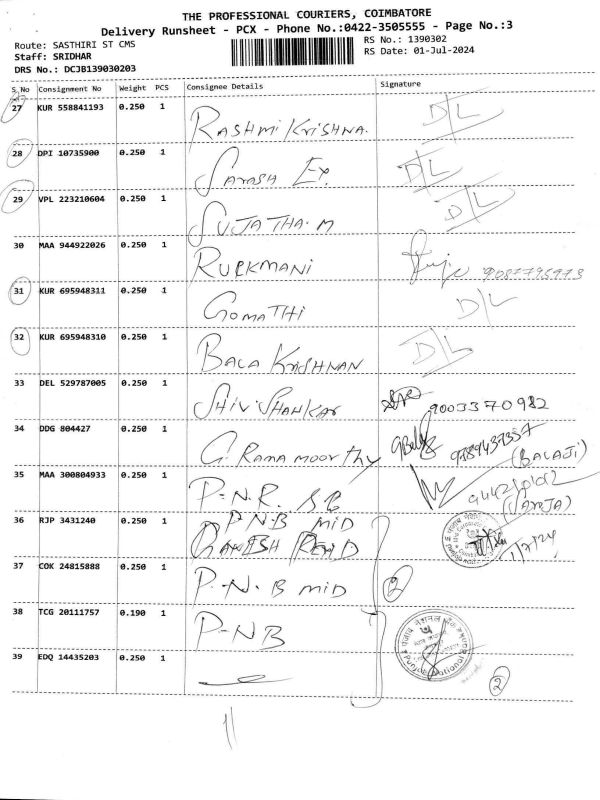 THE PROFESSIONAL COURIERS, COIMBATORE
Delivery Runsheet - PCX - Phone No.:0422-3505555 - Page No.:3
Route: SASTHIRI ST CMS
RS No.: 1390302
Staff: SRIDHAR
RS Date: 01-Jul-2024
DRS No.: DCJB139030203
S.No Consignment No Weight PCS Consignee Details Signature
27 KUR 558841193 0.250 1 RASHMI KRISHNA. D/L
28 DPI 10735900 0.250 1 D/L
29 VPL 223210604 0.250 1 SUJATHA.M D/L
30 MAA 944922026 0.250 1 RUKKMANI
31 KUR 695948311 0.250 1 GOMATHI D/L
32 KUR 695948310 0.250 1 BALA KRISHNAN D/L
33 DEL 529787005 0.250 1 SHIV SHANKAR 9003370982
34 DDG 804427 0.250 1 G. Rama moorthy 9789437337
(BALAJI)
35 MAA 300804933 0.250 1 P.N.R.
36 RJP 3431240 0.250 1 P.N.B MID
GANESH READ 1/7/24
37 COK 24815888 0.250 1 P.N.B MID 2
38 TCG 20111757 0.190 1 P-NB
39 EDQ 14435203 0.250 1 2